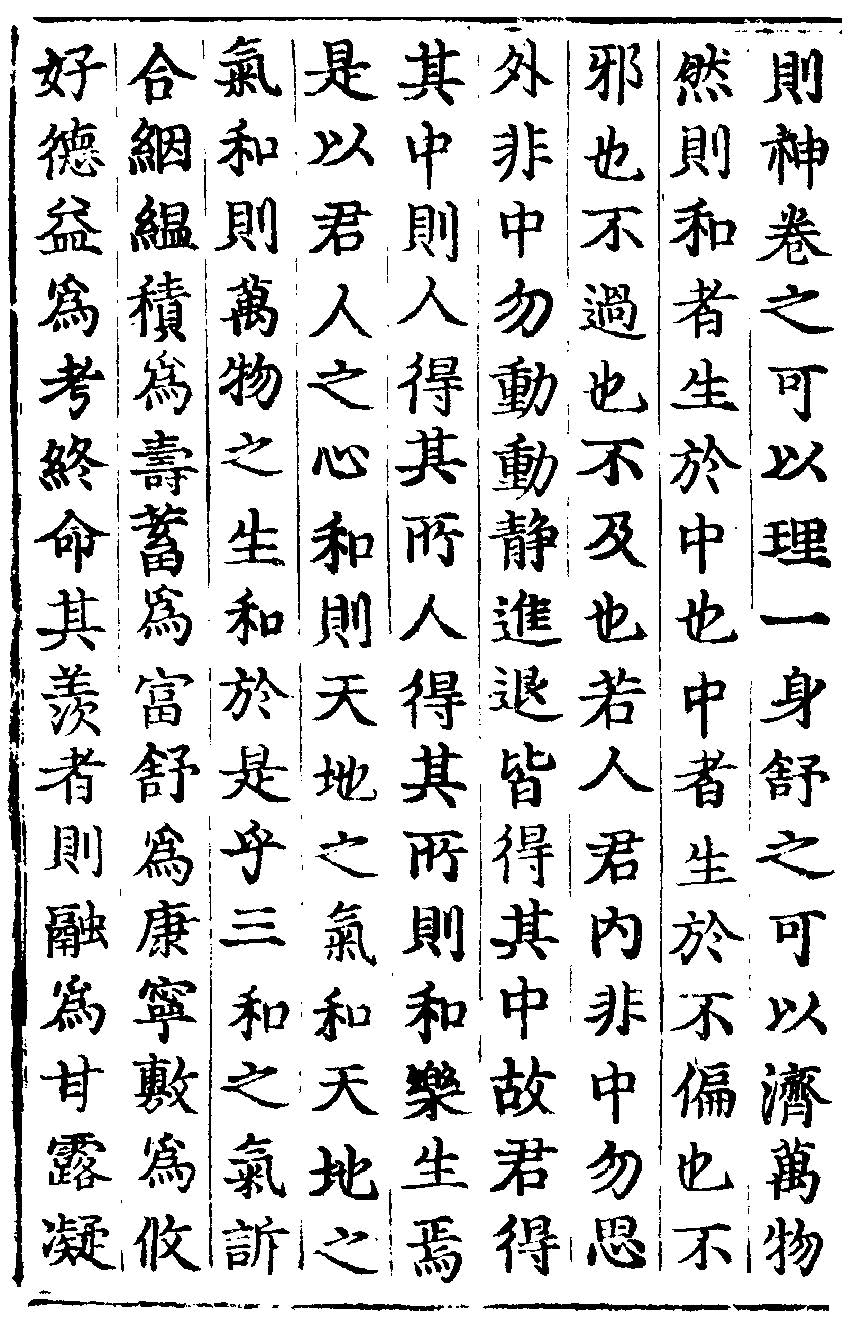 則神卷之可以理一身舒之可以濟萬物
然則和者生於中也中者生於不偏也不
邪也不過也不及也若人君內非中勿思
外非中勿動動靜進退皆得其中故君得
其中則人得其所人得其所則和樂生焉
是以君人之心和則天地之氣和天地之
氣和則萬物之生和於是乎三和之氣訢
合絪縕積爲壽蓄爲富舒爲康寧敷爲攸
好德益爲考終命其羨者則融爲甘露凝